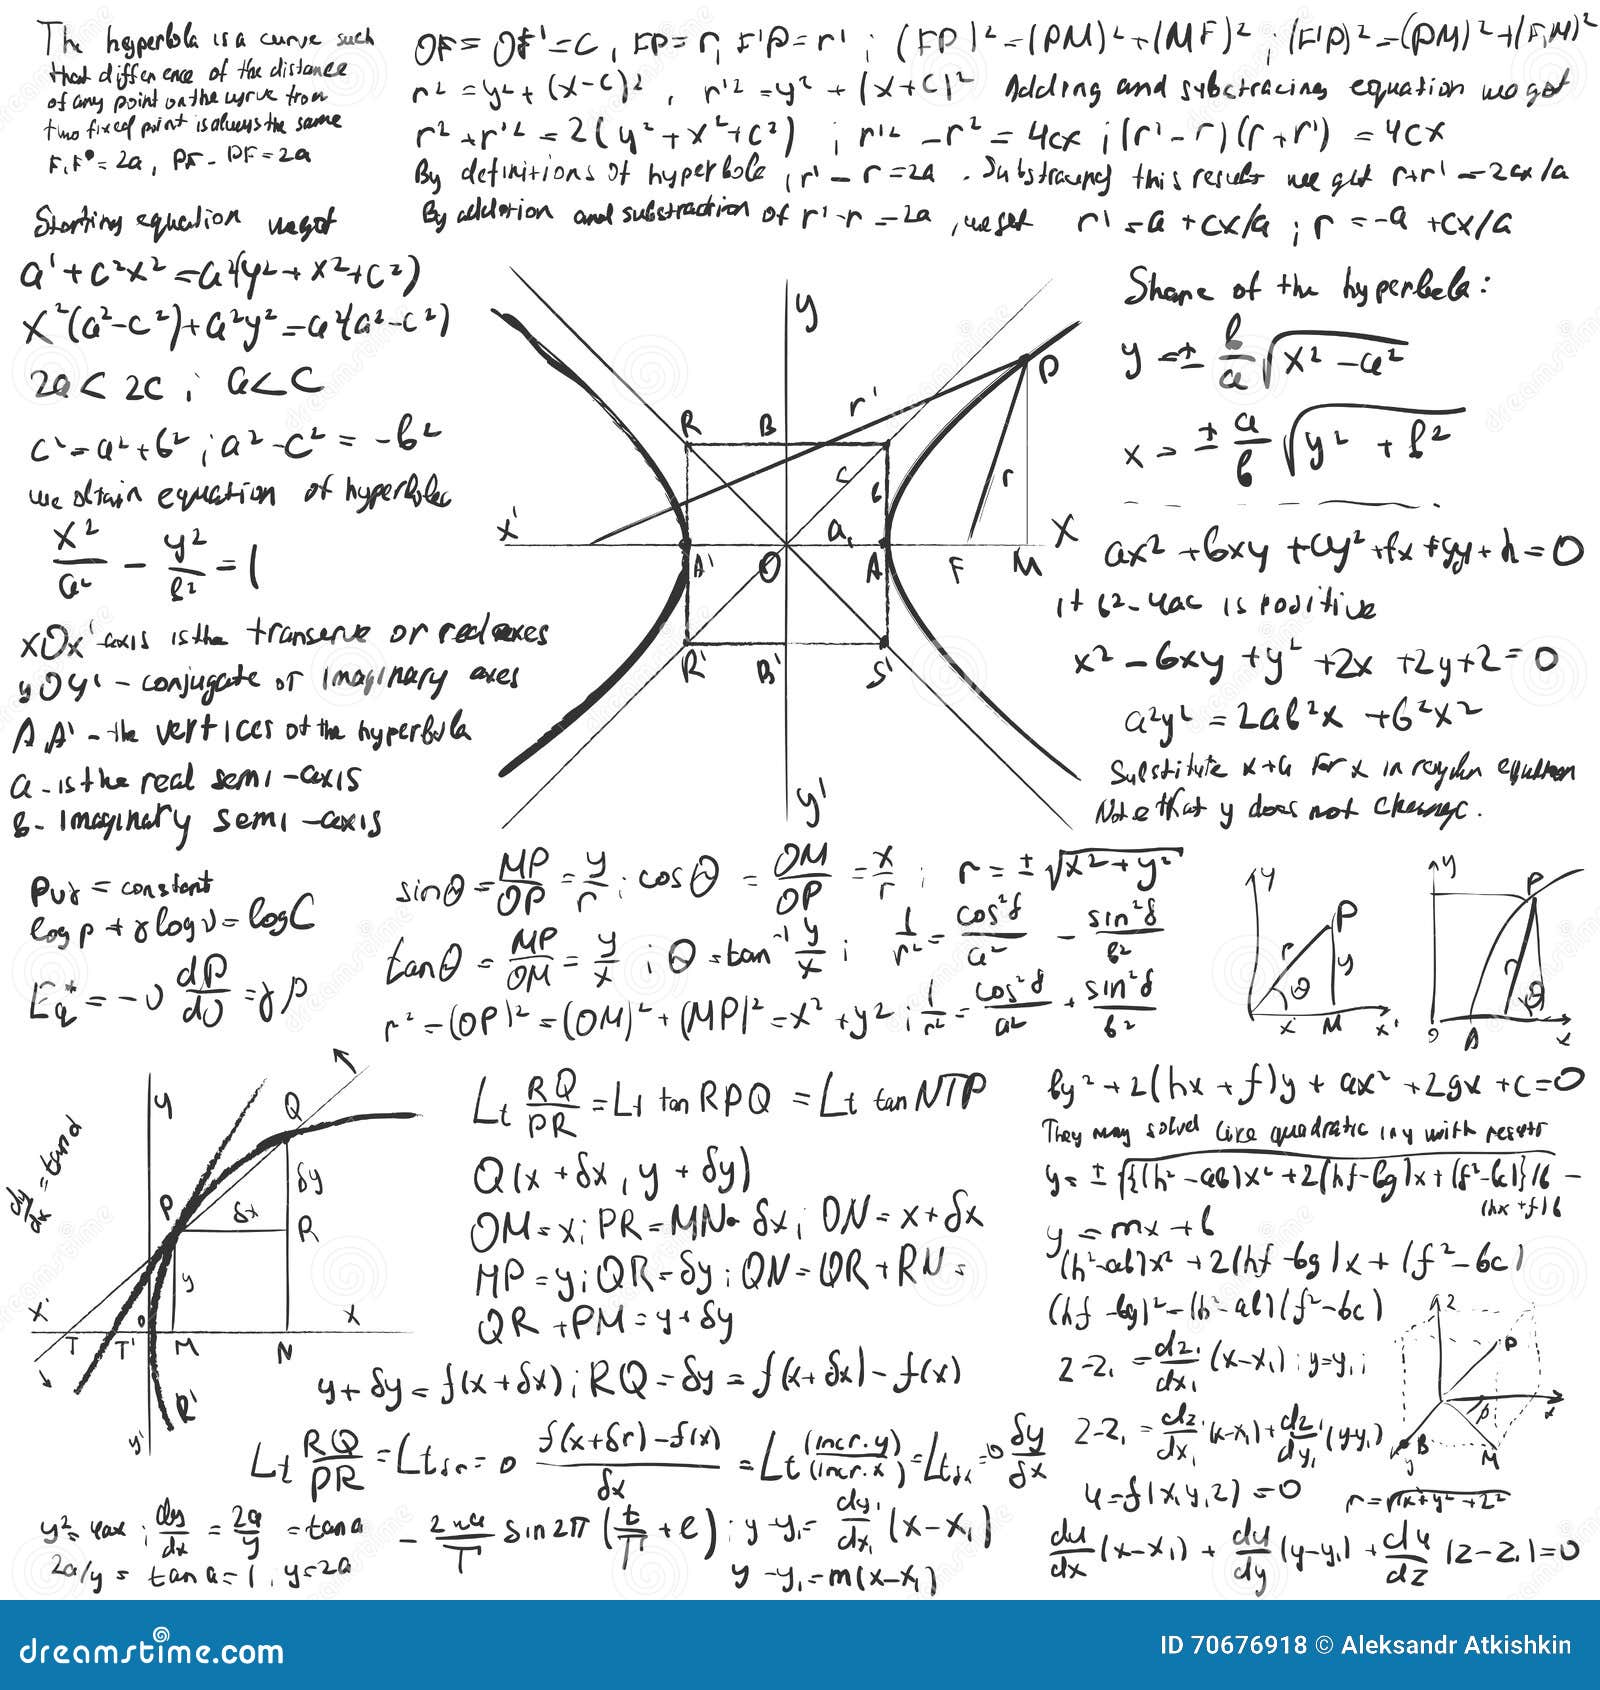 The hyperbola is a curve such
that difference of the distance
of any point on the curve from
two fixed point is always the same
F,F° = 2a, PF - PF = 2a
OF = OF' = C, FP = r, F'P = r' ; (FP)² = (PM)² + (MF)² ; (F'P)² = (PM)² + (F,M)²
r² = y² + (x-c)², r'² = y² + (x+c)² Adding and substracing equation we get
r² + r'² = 2(y² + x² + c²) ; r'² - r² = 4cx ; (r' - r)(r + r') = 4cx
By definitions of hyperbole, r' - r = 2a. Substracing this results we get r+r' = 2cx/a
By addotion and substraction of r' - r = 2a, we get r' = a + cx/a ; r = -a + cx/a
Storting equation we got
a' + c²x² = a²(y² + x² + c²)
x²(a²-c²) + a²y² = a²(a²-c²)
2a < 2c ; a < c
c² = a² + b² ; a² - c² = -b²
we obtain equation of hyperbolec
x²/a² - y²/b² = 1
xOx' axis is the transerve or real axes
yOy' - conjugate or imaginary axes
A,A' - the vertices of the hyperbula
a - is the real semi-axis
b - imaginary semi-axis
y
P
r'
R
B
c
b
r
x'
a
x
A'
O
A
F
M
R'
B'
S'
y'
Shape of the hyperbela:
y = ± b/a √x² - a²
x = ± a/b √y² + b²
ax² + bxy + cy² + fx + gy + h = 0
if b² - 4ac is positive
x² - 6xy + y² + 2x + 2y + 2 = 0
a²y² = 2ab²x + b²x²
Substitute x+a for x in equation
Note that y does not change.
pvɣ = constant
log p + ɣ log v = log C
Eq* = -v dp/dv = ɣp
sinθ = MP/OP = y/r ; cosθ = OM/OP = x/r ; r = ± √x² + y²
tanθ = MP/OM = y/x ; θ = tan⁻¹ y/x ; 1/r² = cos²δ/a² - sin²δ/b²
r² = (OP)² = (OM)² + (MP)² = x² + y² ; 1/r² = cos²δ/a² + sin²δ/b²
y
P
r
y
θ
x
M
x'
y
P
r
θ
o
A
x
dy/dx = tan α
y
Q
δy
P
δx
R
y
x'
o
x
T
T'
M
N
R'
y'
Lt RQ/PR = Lt tan RPQ = Lt tan NTP
Q(x + δx, y + δy)
OM = x; PR = MN = δx; ON = x + δx
MP = y; QR = δy; QN = QR + RN =
QR + PM = y + δy
y + δy = f(x + δx); RQ = δy = f(x + δx) - f(x)
Lt RQ/PR = Lt = 0 f(x + δr) - f(x)/δx = Lt (incr. y)/(incr. x) = Lt = 0 δy/δx
y² = 4ax ; dy/dx = 2a/y = tan a
2a/y = tan a = 1, y = 2a
sin 2π (t/T + e) ; y - y₁ = dy₁/dx₁ (x - x₁)
y - y₁ = m(x - x₁)
by² + 2(hx + f)y + ax² + 2gx + c = 0
They may solved like quadratic in y with
y = ± √{(h² - ab)x² + 2(hf - bg)x + (f² - bc)}/b -
(hx + f)/b
y = mx + b
(h² - ab)x² + 2(hf - bg)x + (f² - bc)
(hf - bg)² - (h² - ab)(f² - bc)
z - z₁ = dz₁/dx₁ (x - x₁) ; y = y₁ ;
z - z₁ = dz₁/dx₁ (x - x₁) + dz₁/dy₁ (y - y₁)
u = f(x, y, z) = 0
r = √x² + y² + z²
du/dx (x - x₁) + du/dy (y - y₁) + du/dz (z - z₁) = 0
z
P
x
B
y
M
dreamstime.com
ID 70676918 © Aleksandr Atkishkin